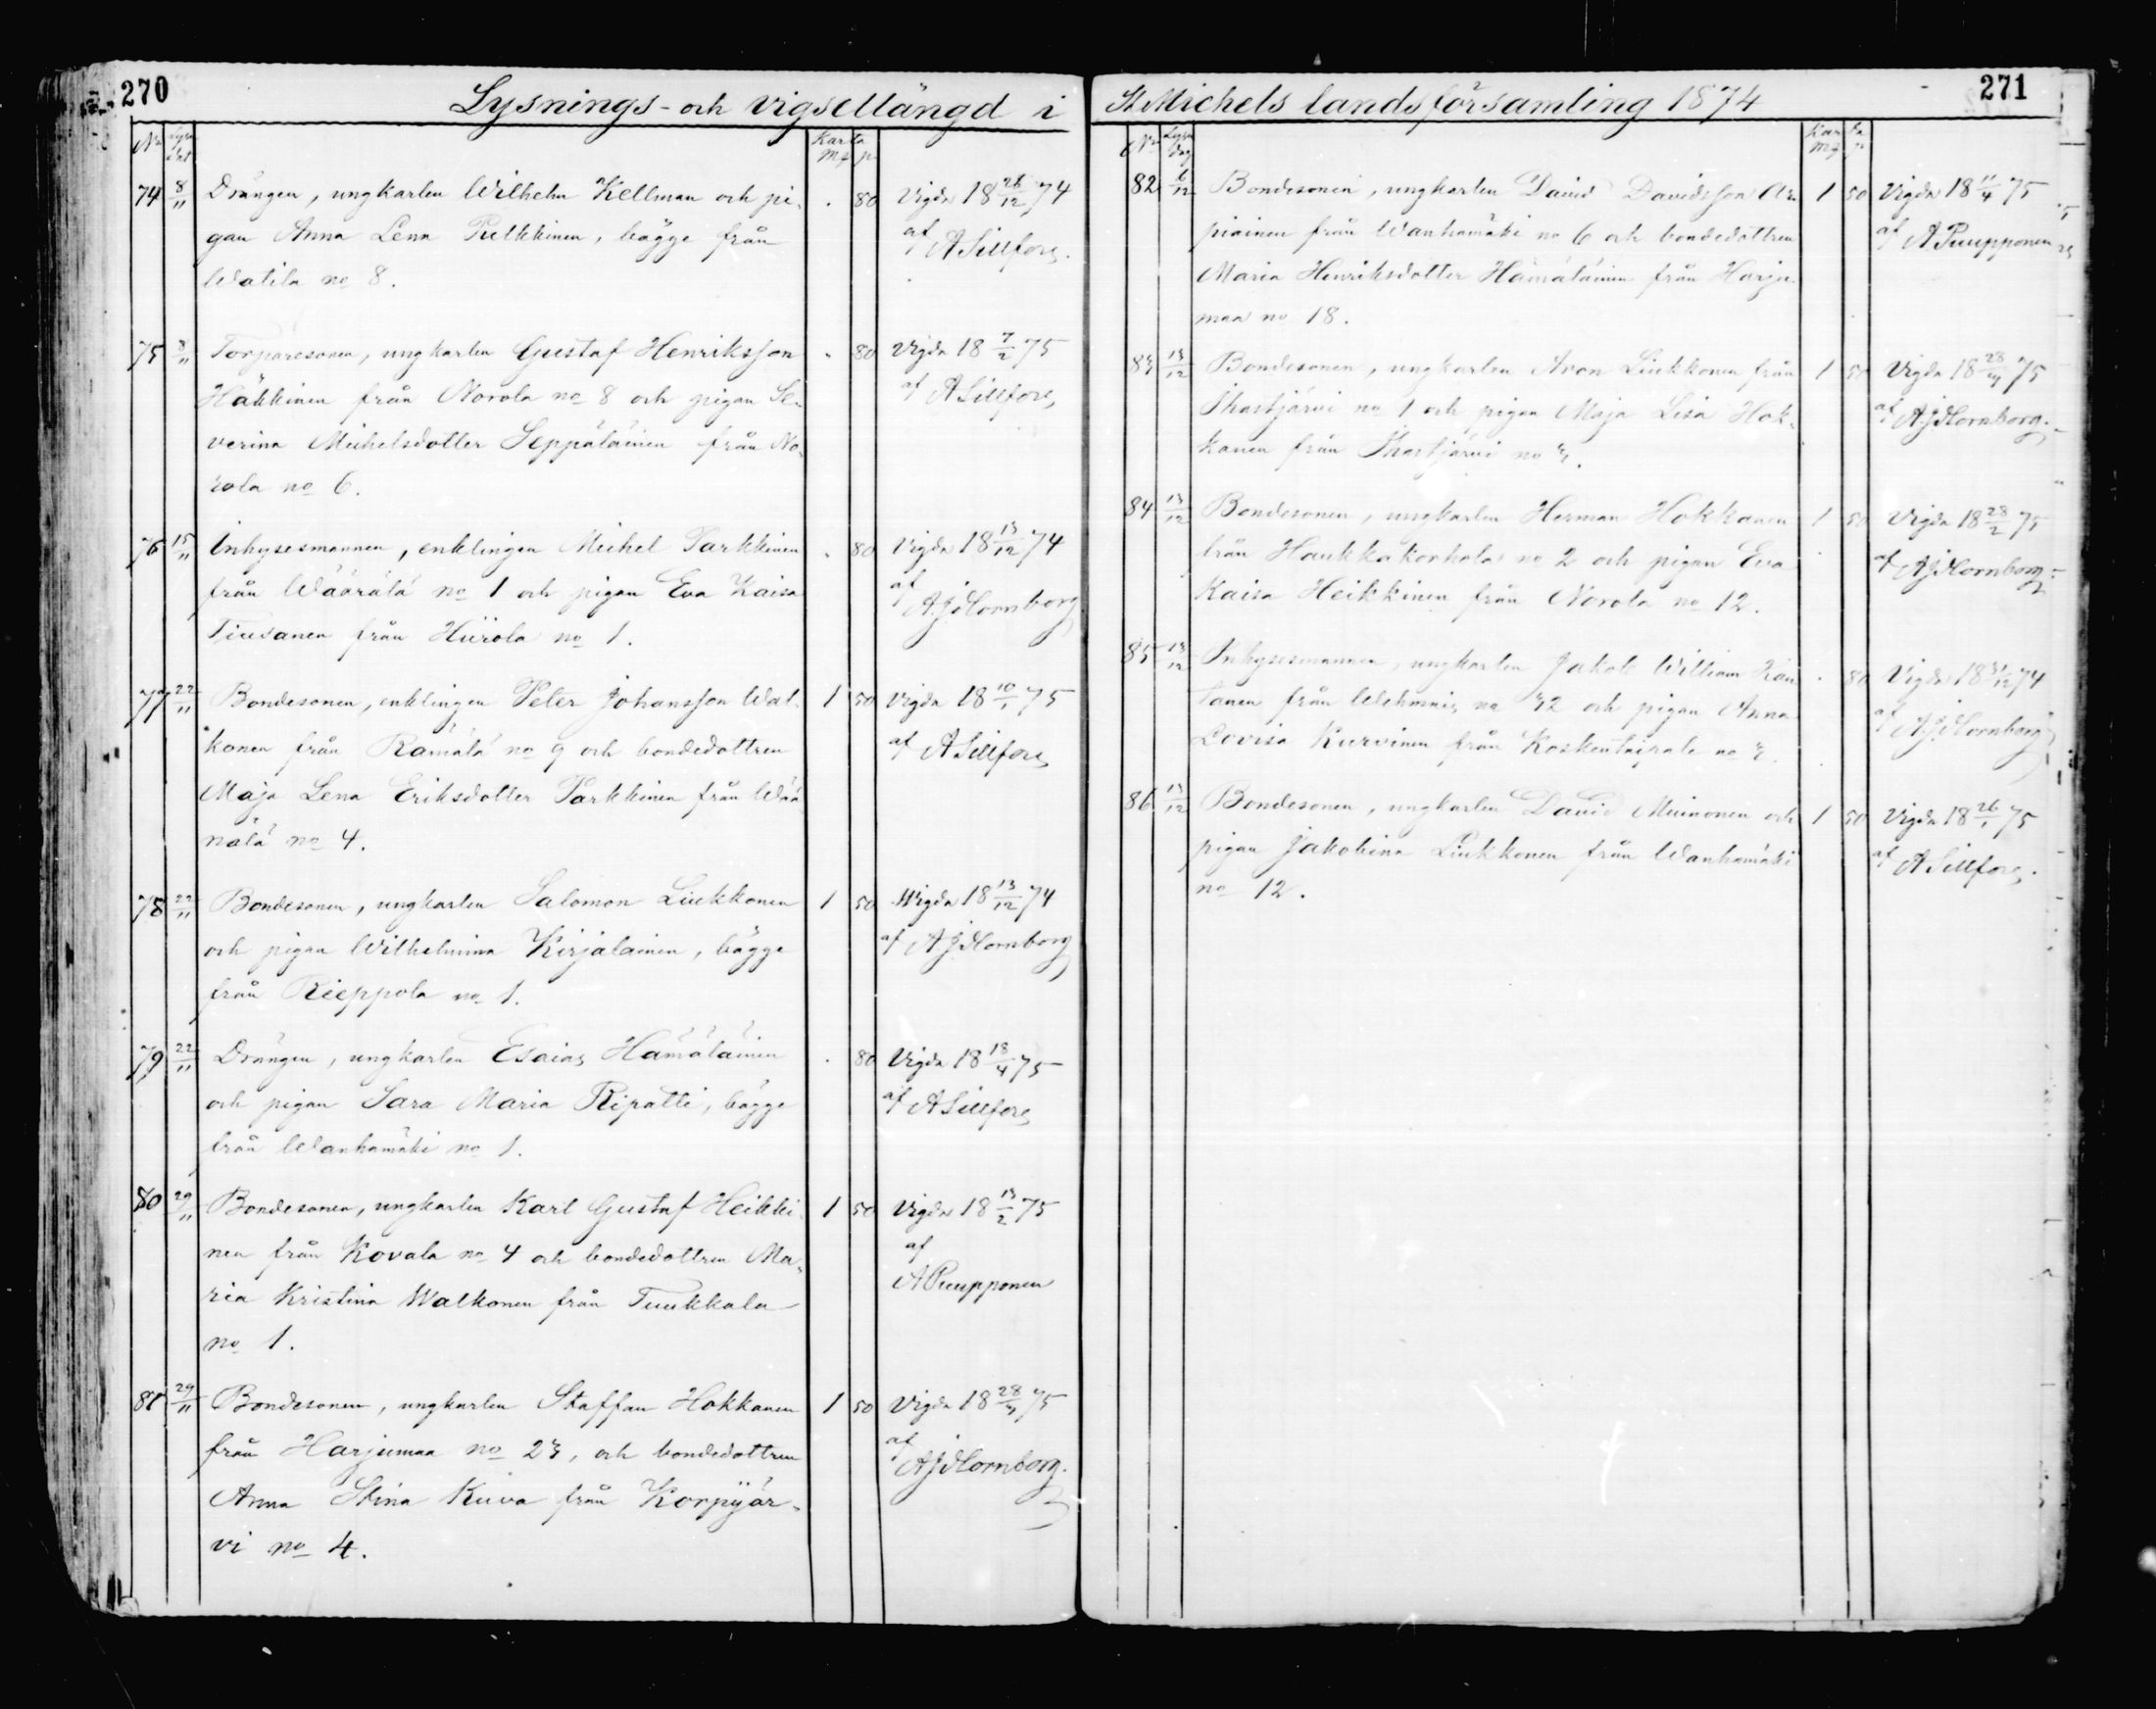 270
Lysnings- och vigsellängd i
No Lysn dat Karta Mk p
74 8/11 Drängen, ungkarlen Wilhelm Kellman och pi- . 80 Vigda 18 26/12 74
gan Anna Lena Pulkkinen, bägge från af A Sillfors.
Watila no 8.
75 8/11 Torparesonen, ungkarlen Gustaf Henriksson . 80 Vigda 18 7/2 75
Häkkinen från Norola no 8 och pigan Se- af A Sillfors
verina Michelsdotter Seppäläinen från No-
rola no 6.
76 15/11 Inhysesmannen, enklingen Michel Parkkinen . 80 Vigda 18 13/12 74
från Wäärälä no 1 och pigan Eva Kaisa af
Tiusanen från Hiirola no 1. A J Hornborg
77 22/11 Bondesonen, enklingen Peter Johansson Wal- 1 50 Vigda 18 10/1 75
konen från Rämälä no 9 och bondedottren af A Sillfors
Maja Lena Eriksdotter Parkkinen från Wää-
nälä no 4.
78 22/11 Bondesonen, ungkarlen Salomon Liukkonen 1 50 Wigda 18 13/12 74
och pigan Wilhelmina Kirjalainen, bägge af A J Hornborg
från Rieppola no 1.
79 22/11 Drängen, ungkarlen Esaias Hämäläinen . 80 Vigda 18 18/4 75
och pigan Sara Maria Ripatti, bägge af A Sillfors
från Wanhamäki no 1.
80 29/11 Bondesonen, ungkarlen Karl Gustaf Heikki- 1 50 Vigda 18 13/2 75
nen från Kovala no 4 och bondedottren Ma- af
ria Kristina Walkonen från Tuukkala A Puupponen
no 1.
81 29/11 Bondesonen, ungkarlen Staffan Hokkanen 1 50 Vigda 18 28/3 75
från Harjumaa no 23, och bondedottren af
Anna Stina Kuva från Korpijär- A J Hornborg.
vi no 4.
271
St Michels landsförsamling 1874
No Lysn dag Karta Mk p
82 6/12 Bondesonen, ungkarlen David Davidsson 1 50 Vigda 18 11/4 75
piainen från Wanhamäki no 6 och bondedottren af A Puupponen
Maria Henriksdotter Hämäläinen från Harju-
maa no 18.
83 13/12 Bondesonen, ungkarlen Aron Liukkonen från 1 50 Vigda 18 28/3 75
Ihastjärvi no 1 och pigan Maja Lisa Hok- af A J Hornborg.
kanen från Ihastjärvi no 3.
84 13/12 Bondesonen, ungkarlen Herman Hokkanen 1 50 Vigda 18 28/2 75
från Haukkakorhola no 2 och pigan Eva af A J Hornborg
Kaisa Heikkinen från Norola no 12.
85 13/12 Inhysesmannen, ungkarlen Jakob William . 80 Vigda 18 31/12 74
tanen från no 32 och pigan Anna af A J Hornborg
Lovisa Kurvinen från Koskentaipale no 3.
86 13/12 Bondesonen, ungkarlen David Muinonen och 1 50 Vigda 18 26/1 75
pigan Jakobina Liukkonen från Wanhamäki af A Sillfors.
no 12.